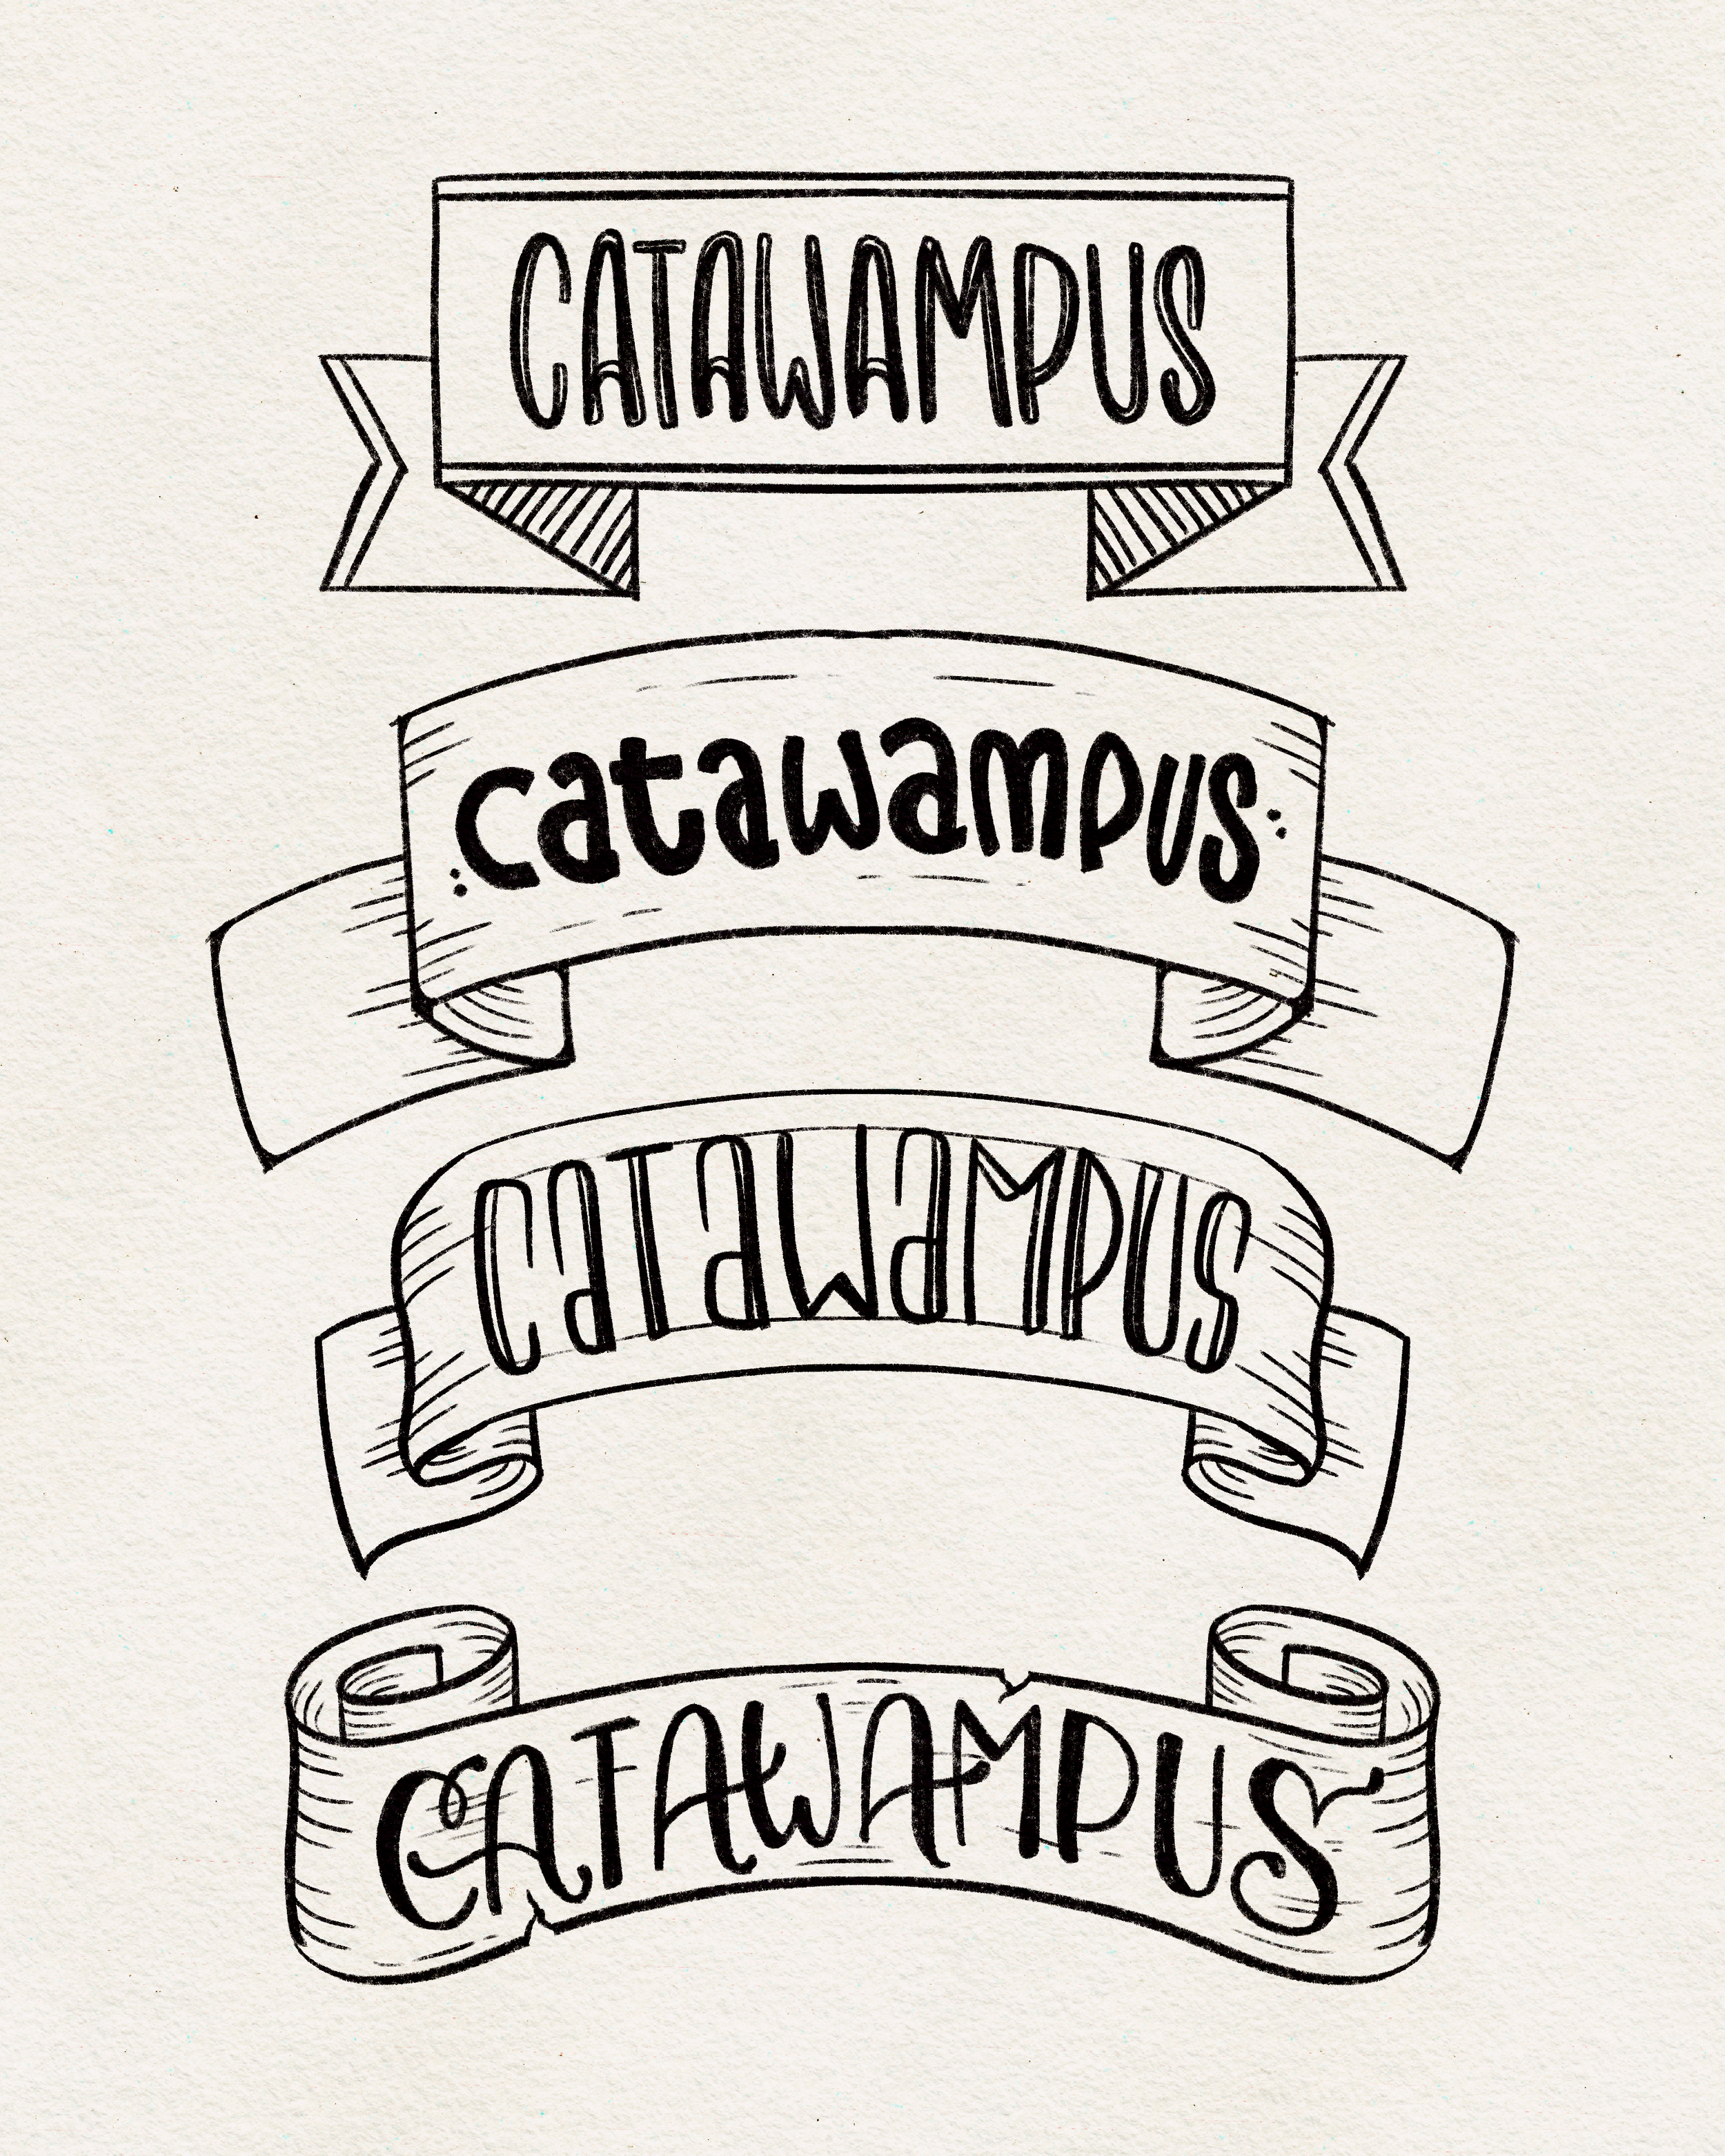 CATAWAMPUS
catawampus
CaTaWaMPUS
CATAWAMPUS